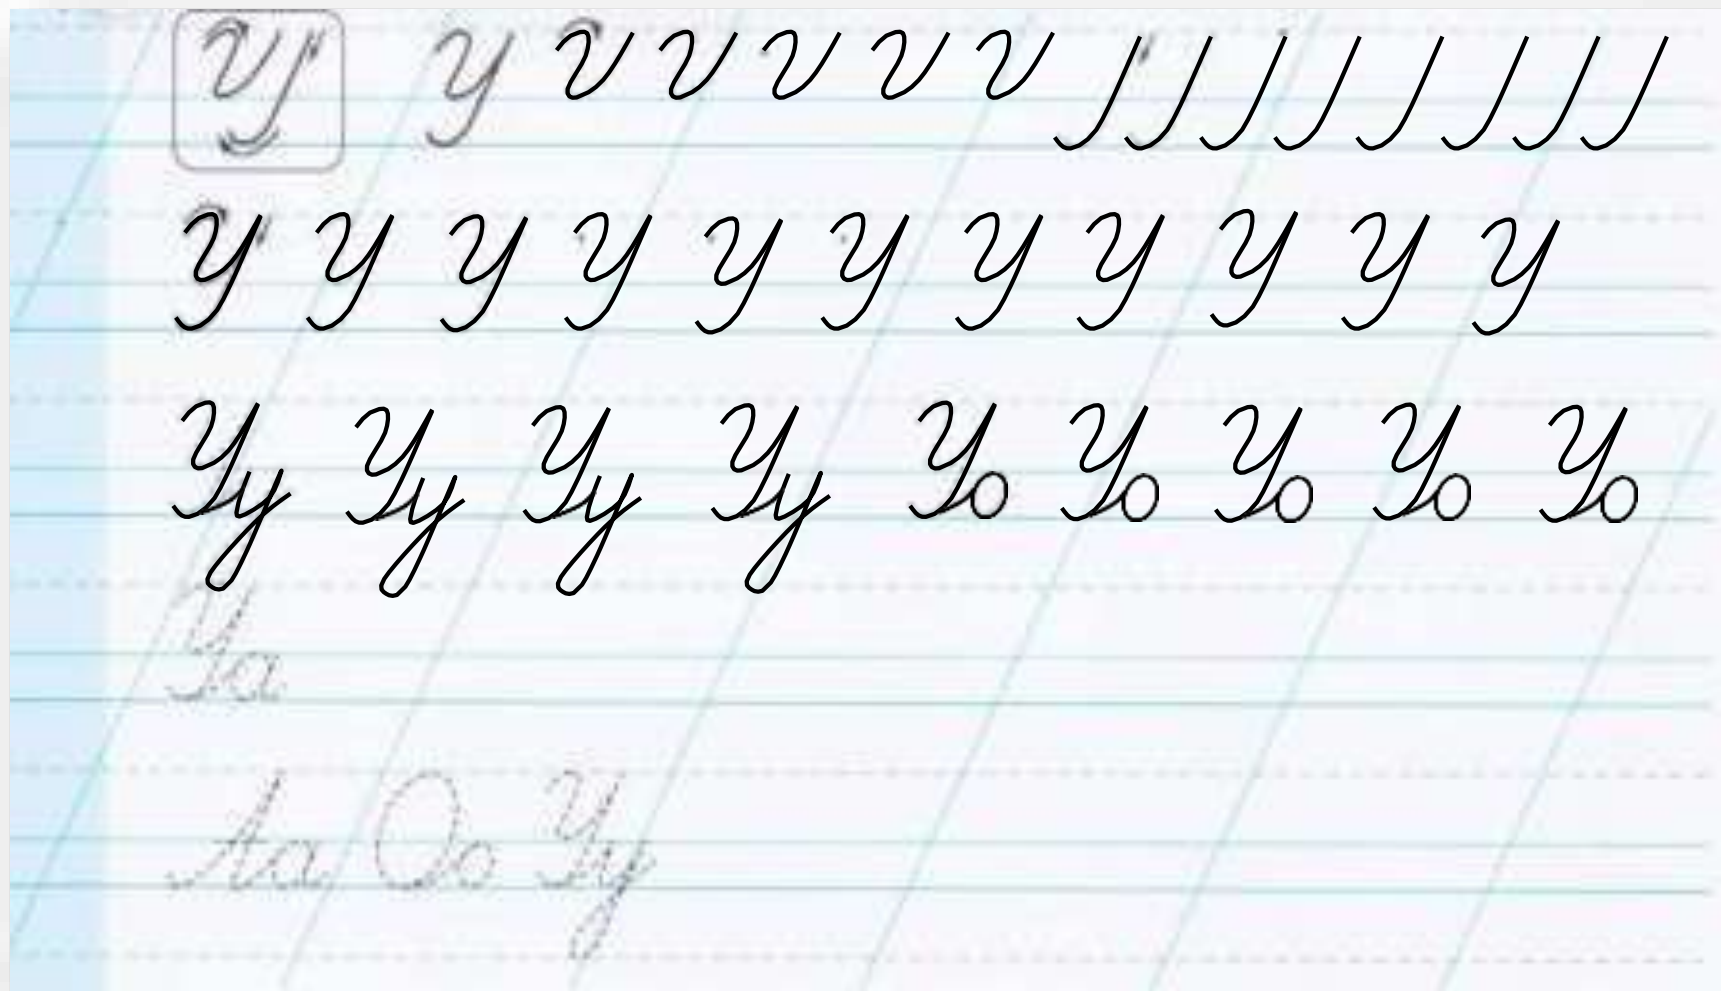 У У
У У У У У У У У У У У
Уу Уу Уу Уу Уо Уо Уо Уо Уо
Уа
Аа Оо Уу